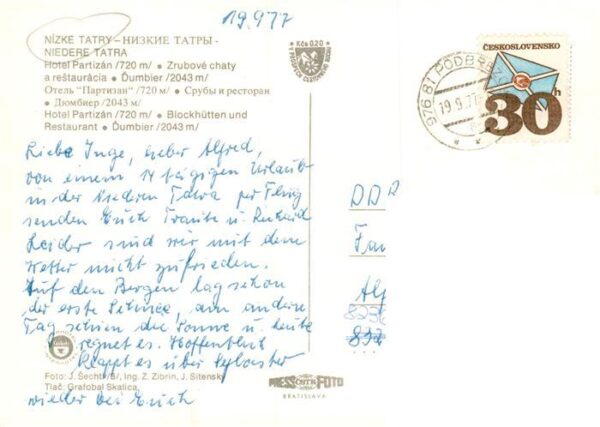 19.977
NÍZKE TATRY - НИЗКИЕ ТАТРЫ -
NIEDERE TATRA
Hotel Partizán /720 m/ • Zrubové chaty
a reštaurácia • Ďumbier /2043 m/
Отель "Партизан" /720 м/ • Срубы и ресторан
• Дюмбиер /2043 м/
Hotel Partizán /720 m/ • Blockhütten und
Restaurant • Ďumbier /2043 m/
Kčs 0,20
ČESKOSLOVENSKO
30h
976 81 PODBRE
19.9.77
Liebe Inge, lieber Alfred,
von einem 14 tägigen Urlaub
in der Niederen Tatra per Flug
senden Euch Traute u. Richard
Leider sind wir mit dem
Wetter nicht zufrieden.
Auf den Bergen lag schon
der erste Schnee, am andern
Tag schien die Sonne u. heute
regnet es. Hoffentlich
klappt es über Sylvester
wieder bei Euch
DDR
Fa
Al
Foto: J. Šechtl /8/, Ing. Z. Zibrín, J. Sitenský
Tlač: Grafobal Skalica,
PRESSFOTO
BRATISLAVA